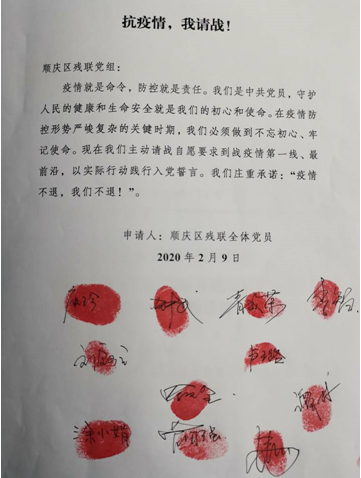 抗疫情，我请战！
顺庆区残联党组：
疫情就是命令，防控就是责任。我们是中共党员，守护
人民的健康和生命安全就是我们的初心和使命。在疫情防
控形势严峻复杂的关键时期，我们必须做到不忘初心、牢
记使命。现在我们主动请战自愿要求到战疫情第一线、最
前沿，以实际行动践行入党誓言。我们庄重承诺：“疫情
不退，我们不退！”。
申请人：顺庆区残联全体党员
2020 年 2 月 9 日
涂小娟